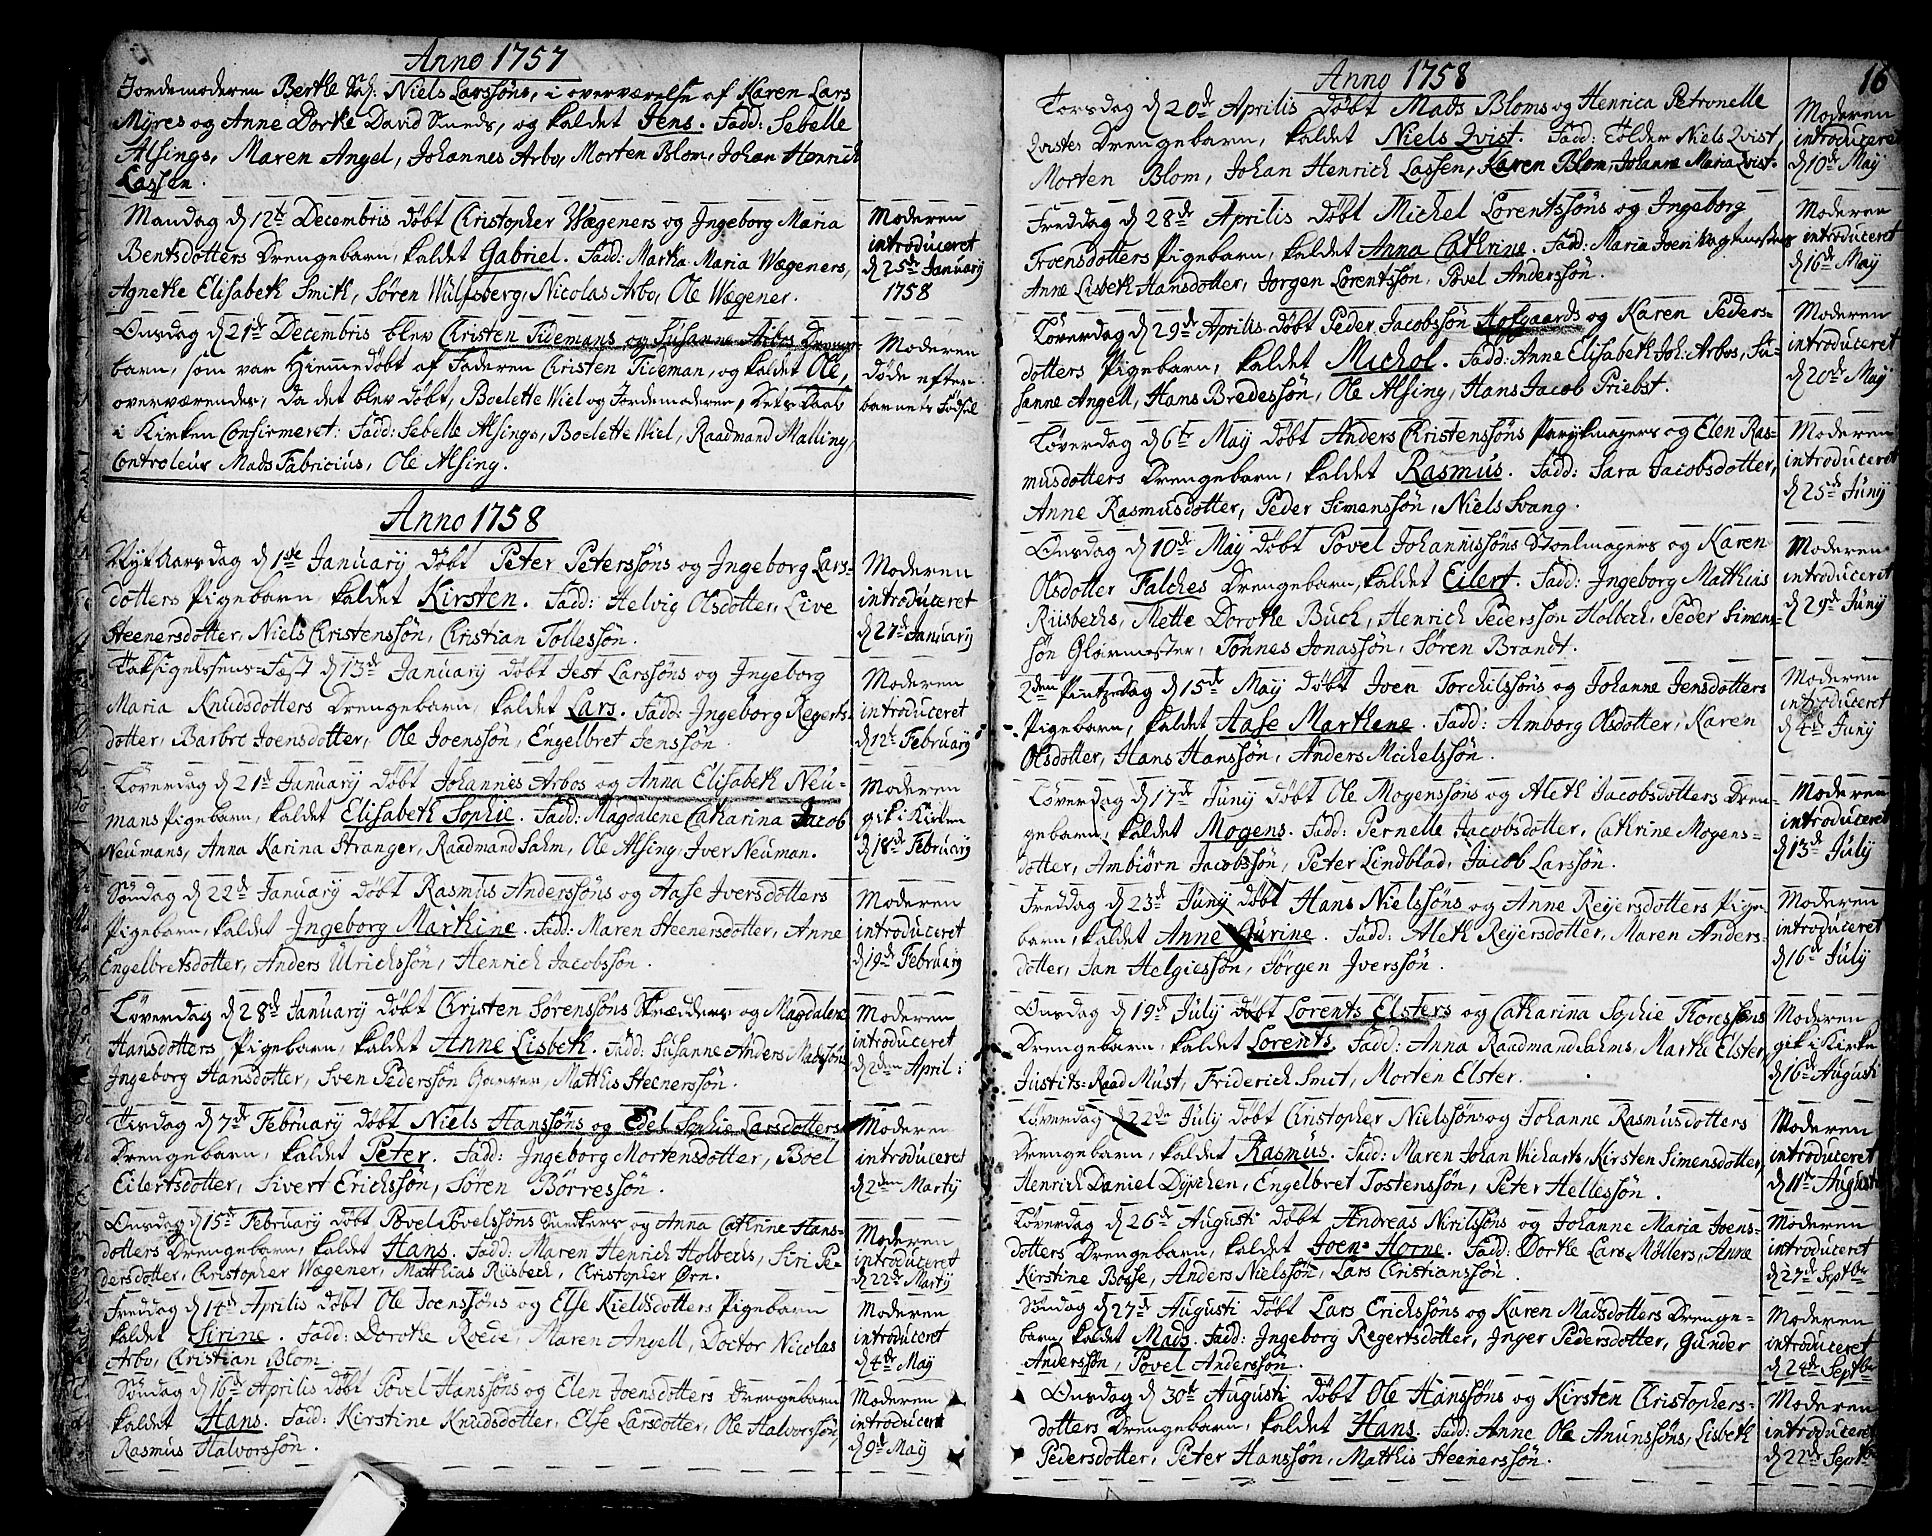 Anno 1757
Jordemoderen Berthe Sal: Niels Larssøns, i overværelse af Karen Lars
Myres og Anne Dorthe David Smeds, og kaldet Jens. Fadd: Sebelle
Alsings, Maren Angel, Johannes Arbo, Morten Blom, Johan Henrich
Lassen.
Mandag d 12te Decembris døbt Christopher Wægeners og Ingeborg Maria
Bentsdotters Drengebarn, kaldet Gabriel. Fadd: Martha Maria Wægeners,
Agnethe Elisabeth Smith, Søren Wulfsberg, Nicolas Arbo, Ole Wægener.
Moderen
introduceret
d 25de January
1758
Onsdag d 21de Decembris blev Christen Tidemans og Susanne Arbos Drenge-
barn, som var Hiemmedøbt af Faderen Christen Tideman, og kaldet Ole,
overværendes, da det blev døbt, Boelette Wiel og Jordemoderen, dets Daab
i Kirken Confirmeret: Fadd: Sebelle Alsings, Boelette Wiel, Raadmand Malling,
Controleur Mads Fabricius, Ole Alsing.
Moderen
døde efter
barnets Fødsel
Anno 1758
Nyt Aars dag d 1ste January døbt Peter Peterssøns og Ingeborg Lars-
dotters Pigebarn, kaldet Kirsten. Fadd: Helvig Olsdotter, Live
Steenersdotter, Niels Christenssøn, Christian Tollessøn.
Moderen
introduceret
d 27de January
Taksigelssens-Fest d 13de January døbt Jest Larssøns og Ingeborg
Maria Knudsdotters Drengebarn, kaldet Lars. Fadd: Ingeborg Regerts-
dotter, Barbro Joensdotter, Ole Joenssøn, Engelbret Jenssøn.
Moderen
introduceret
d 12te February
Løverdag d 21de January døbt Johannes Arbos og Anna Elisabeth Neu-
mans Pigebarn, kaldet Elisabeth Sophie. Fadd: Magdalene Catharina Jacob
Neumans, Anna Karina Stranger, Raadmand Sahm, Ole Alsing, Iver Neuman.
Moderen
gik i Kirken
d 18de February
Søndag d 22de January døbt Rasmus Anderssøns og Aase Iversdotters
Pigebarn, kaldet Ingeborg Marthine. Fadd: Maren Steenersdotter, Anne
Engelbretsdotter, Anders Ulrichssøn, Henrich Jacobssøn.
Moderen
introduceret
d 19de February
Løverdag d 28de January døbt Christen Sørenssøns Skrædders og Magdalene
Hansdotters Pigebarn, kaldet Anne Lisbeth. Fadd: Susanne Anders Madssøns,
Ingeborg Hansdotter, Sven Pederssøn Garver, Matthis Steenerssøn.
Moderen
introduceret
d 2den April:
Tirsdag d 7de February døbt Niels Hanssøns og Edel Sophie Larsdotters
Drengebarn, kaldet Peter. Fadd: Ingeborg Mortensdotter, Boel
Eilertsdotter, Sivert Erichssøn, Søren Børressøn.
Moderen
introduceret
d 2den Martij
Onsdag d 15de February døbt Povel Povelssøns Snedkers og Anna Cathrine Hans-
dotters Drengebarn, kaldet Hans. Fadd: Maren Henrich Holbechs, Siri Pe-
dersdotter, Christopher Wægener, Matthias Riisbech, Christopher Ørn.
Moderen
introduceret
d 22de Martij
Freddag d 14de Aprilis døbt Ole Joenssøns og Else Kieldsdotters Pigebarn
kaldet Sirine. Fadd: Dorothe Roede, Maren Angell, Doctor Nicolas
Arbo, Christian Blom.
Moderen
introduceret
d 4de May
Søndag d 16de Aprilis døbt Povel Hanssøns og Elen Joensdotters Drengebarn
kaldet Hans. Fadd: Kirstine Knudsdotter, Else Larsdotter, Ole Halvorssøn,
Rasmus Halvorssøn.
Moderen
introduceret
d 9de May
Anno 1758
16
Torsdag d 20de Aprilis døbt Mads Bloms og Henrica Petronelle
Qvistes Drengebarn, kaldet Niels Qvist. Fadd: Tolder Niels Qvist,
Morten Blom, Johan Henrich Lassen, Karen Blom, Johanne Maria Qvist.
Moderen
introduceret
d 10de May
Freddag d 28de Aprilis døbt Michel Lorentssøns og Ingeborg
Troensdotters Pigebarn, kaldet Anna Cathrine. Fadd: Maria Joen Vagtmesters
Anne Lisbeth Hansdotter, Jørgen Lorentssøn, Povel Anderssøn.
Moderen
introduceret
d 16de May
Løverdag d 29de Aprilis døbt Peder Jacobssøn Hofgaards og Karen Peders-
dotters Pigebarn, kaldet Michol. Fadd: Anne Elisabeth Joh: Arbos, Su-
sanne Angell, Hans Bredessøn, Ole Alsing, Hans Jacob Priebst.
Moderen
introduceret
d 20de May
Løverdag d 6te May døbt Anders Christenssøns Parykmagers og Elen Ras-
musdotters Drengebarn, kaldet Rasmus. Fadd: Sara Jacobsdotter,
Anne Rasmusdotter, Peder Simenssøn, Niels Svang.
Moderen
introduceret
d 25de Juny
Onsdag d 10de May døbt Povel Johannissøns Stoelmagers og Karen
Olsdotter Falches Drengebarn, kaldet Eilert. Fadd: Ingeborg Matthias
Riisbechs, Mette Dorothe Buch, Henrich Pederssøn Holbech, Peder Simens-
søn Glarmester, Tønnes Jonassøn, Søren Brandt.
Moderen
introduceret
d 29de Juny
2den Pintzedag d 15de May døbt Joen Torchilssøns og Johanne Jensdotters
Pigebarn, kaldet Aase Marthene. Fadd: Amborg Olsdotter, Karen
Olsdotter, Hans Hanssøn, Anders Michelssøn.
Moderen
introduceret
d 4de Juny
Løverdag d 17de Juny døbt Ole Mogenssøns og Aleth Jacobsdotters Dren-
gebarn, kaldet Mogens. Fadd: Pernelle Jacobsdotter, Cathrine Mogens-
dotter, Ambiørn Jacobssøn, Peter Lindblad, Jacob Larssøn.
Moderen
introduceret
d 13de July
Freddag d 23de Juny døbt Hans Nielssøns og Anne Reyersdotters Pige-
barn, kaldet Anne Gurine. Fadd: Aleth Reyersdotter, Maren Anders-
dotter, Jan Helgiessøn, Jørgen Iverssøn.
Moderen
introduceret
d 16de July
Onsdag d 19de July døbt Lorents Elsters og Catharina Sophie Thoressøns
Drengebarn, kaldet Lorents. Fadd: Anna Raadmand Sahms, Marthe Elster,
Justits-Raad Must, Friderich Smit, Morten Elster.
Moderen
gik i Kirke
d 16de Augusti
Løverdag d 22de July døbt Christopher Nielssøns og Johanne Rasmusdotters
Drengebarn, kaldet Rasmus. Fadd: Maren Johan Wicharts, Kirsten Simensdotter,
Henrich Daniel Dypchen, Engelbret Tostenssøn, Peter Hellessøn.
Moderen
introduceret
d 11te Augusti
Løverdag d 26de Augusti døbt Andreas Nirilssøns og Johanne Maria Joens-
dotters Drengebarn, kaldet Joen Horne. Fadd: Dorthe Lars Møllers, Anne
Kirstine Bosse, Anders Nielssøn, Lars Christianssøn.
Moderen
introduceret
d 27de Septbr
Søndag d 27de Augusti døbt Lars Erichssøns og Karen Madsdotters Drenge-
barn, kaldet Mads. Fadd: Ingeborg Regertsdotter, Inger Pedersdotter, Gunder
Anderssøn, Povel Anderssøn.
Moderen
introduceret
d 24de Septbr
Onsdag d 30te Augusti døbt Ole Hanssøns og Kirsten Christophers-
dotters Drengebarn, kaldet Hans. Fadd: Anne Ole Anunssøns, Lisbeth
Pedersdotter, Peter Hanssøn, Matthis Steenerssøn.
Moderen
introduceret
d 22de Septbr